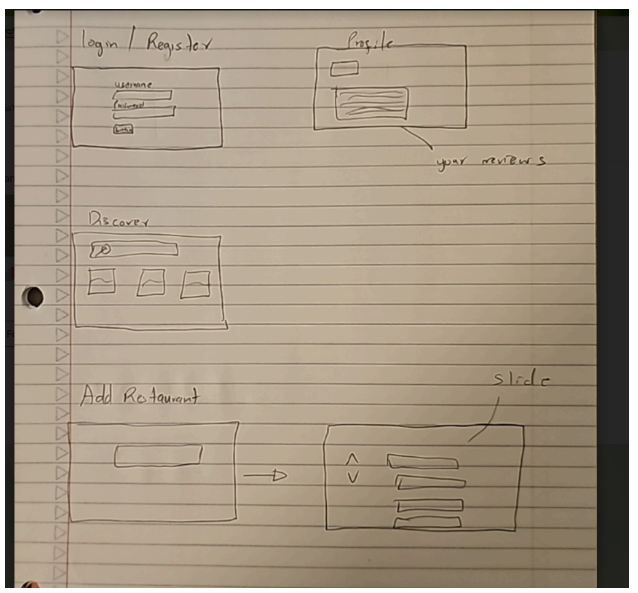 login / Register
username
password
Profile
your reviews
Discover
Add Restaurant
slide